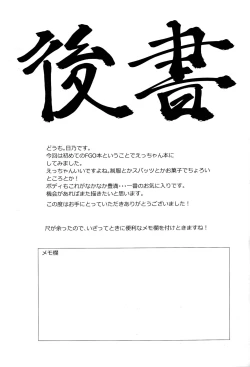 後書
どうも。日乃です。
今回は初めてのFGO本ということでえっちゃん本に
してみました。
えっちゃんいいですよね。眼鏡とかスパッツとかお菓子でちょろい
ところとか！
ボディもこれがなかなか豊満・・・一番のお気に入りです。
機会があればまた描きたいと思います。
この度はお手にとっていただきありがとうございました！
尺が余ったので、いざってときに便利なメモ欄を付けときますね！
メモ欄